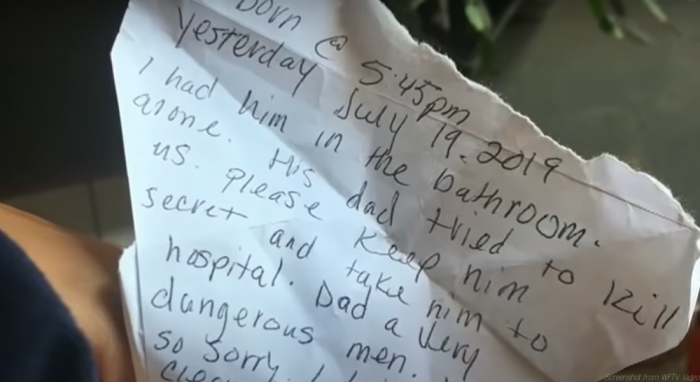 born @ 5:45pm
yesterday July 19. 2019
I had him in the bathroom.
alone. His dad tried to kill
us. Please keep him
secret and take him to
hospital. Dad a very
dangerous men.
so sorry. I
Screenshot from WFTV Video